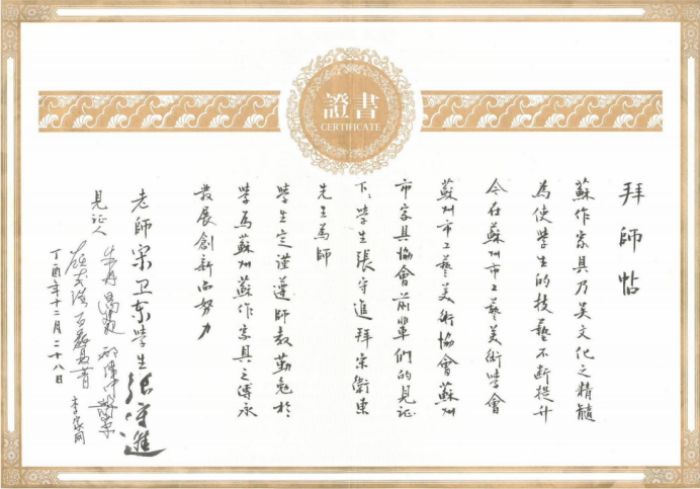 證書
CERTIFICATE
拜師帖
蘇作家具乃吴文化之精髓
為使學生的技藝不断提升
今在蘇州市工藝美術學會
蘇州市工藝美術協會蘇州
市家具協會前輩們的見证
下，學生張守進拜宋衛東
先生為師
學生定謹遵師教勤勉於
學為蘇州蘇作家具之傳承
發展創新而努力
老師宋卫东學生张守進
見证人
李家同
丁酉年十二月二十八日